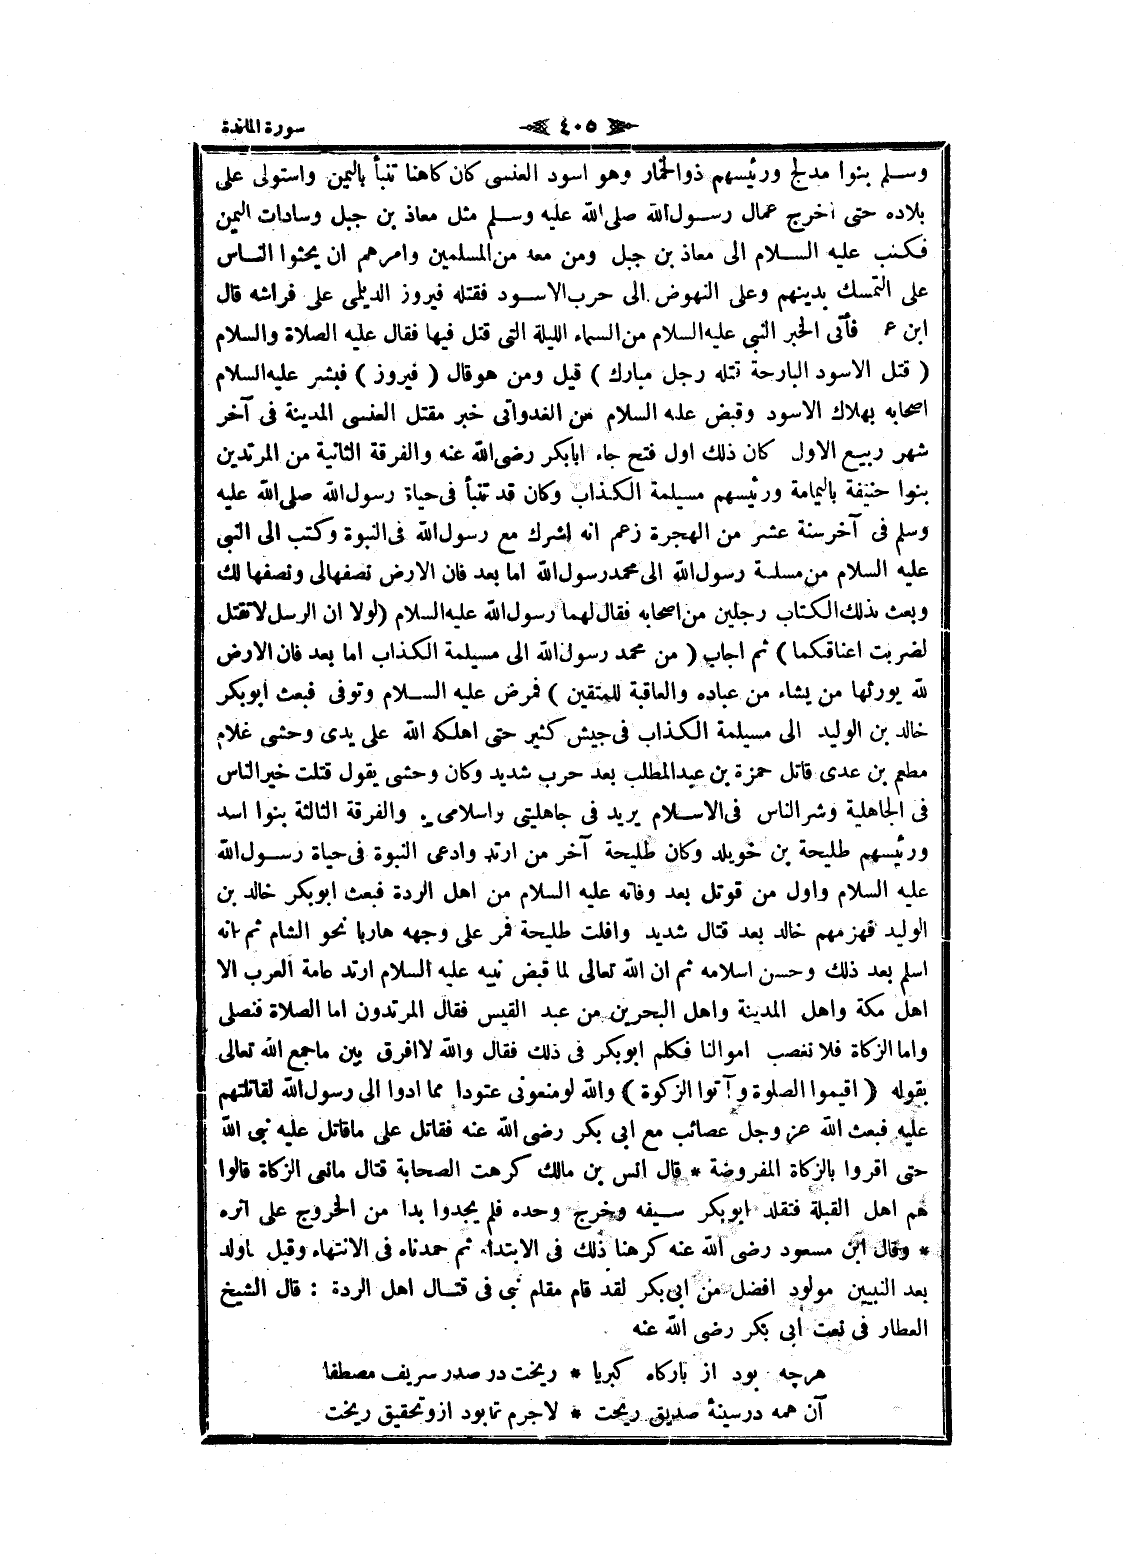 سورة المائدة ٤٠٥
وسلم بنوا مدلج ورئيسهم ذوالخمار وهو اسود العنسى كان كاهنا تنبأ باليمن واستولى على
بلاده حتى اخرج عمال رسول الله صلى الله عليه وسلم مثل معاذ بن جبل وسادات اليمن
فكتب عليه السلام الى معاذ بن جبل ومن معه من المسلمين وامرهم ان يحثوا الناس
على التمسك بدينهم وعلى النهوض الى حرب الاسود فقتله فيروز الديلمى على فراشه قال
ابن ع فأتى الخبر النبى عليه السلام من السماء الليلة التى قتل فيها فقال عليه الصلاة والسلام
( قتل الاسود البارحة قتله رجل مبارك ) قيل ومن هو قال ( فيروز ) فبشر عليه السلام
اصحابه بهلاك الاسود وقبض عليه السلام من الغد واتى خبر مقتل العنسى المدينة فى آخر
شهر ربيع الاول كان ذلك اول فتح جاء ابابكر رضى الله عنه والفرقة الثانية من المرتدين
بنوا حنيفة باليمامة ورئيسهم مسيلمة الكذاب وكان قد تنبأ فى حياة رسول الله صلى الله عليه
وسلم فى آخر سنة عشر من الهجرة زعم انه اشرك مع رسول الله فى النبوة وكتب الى النبى
عليه السلام من مسلمة رسول الله الى محمد رسول الله اما بعد فان الارض نصفها لى ونصفها لك
وبعث بذلك الكتاب رجلين من اصحابه فقال لهما رسول الله عليه السلام (لولا ان الرسل لا تقتل
لضربت اعناقكما ) ثم اجاب ( من محمد رسول الله الى مسيلمة الكذاب اما بعد فان الارض
لله يورثها من يشاء من عباده والعاقبة للمتقين ) فمرض عليه السلام وتوفى فبعث ابوبكر
خالد بن الوليد الى مسيلمة الكذاب فى جيش كثير حتى اهلكه الله على يدى وحشى غلام
مطعم بن عدى قاتل حمزة بن عبدالمطلب بعد حرب شديد وكان وحشى يقول قتلت خير الناس
فى الجاهلية وشر الناس فى الاسلام يريد فى جاهليتى واسلامى . والفرقة الثالثة بنوا اسد
ورئيسهم طليحة بن خويلد وكان طليحة آخر من ارتد وادعى النبوة فى حياة رسول الله
عليه السلام واول من قوتل بعد وفاته عليه السلام من اهل الردة فبعث ابوبكر خالد بن
الوليد فهزمهم خالد بعد قتال شديد وافلت طليحة فمر على وجهه هاربا نحو الشام ثم انه
اسلم بعد ذلك وحسن اسلامه ثم ان الله تعالى لما قبض نبيه عليه السلام ارتد عامة العرب الا
اهل مكة واهل المدينة واهل البحرين من عبد القيس فقال المرتدون اما الصلاة فنصلى
واما الزكاة فلا تغصب اموالنا فكلم ابوبكر فى ذلك فقال والله لا افرق بين ما جمع الله تعالى
بقوله ( اقيموا الصلوة وآتوا الزكوة ) والله لو منعونى عتودا مما ادوا الى رسول الله لقاتلتهم
عليه فبعث الله عز وجل عصائب مع ابى بكر رضى الله عنه فقاتل على ما قاتل عليه نبى الله
حتى اقروا بالزكاة المفروضة * قال انس بن مالك كرهت الصحابة قتال مانعى الزكاة قالوا
هم اهل القبلة فتقلد ابوبكر سيفه وخرج وحده فلم يجدوا بدا من الخروج على اثره
* وقال ابن مسعود رضى الله عنه كرهنا ذلك فى الابتداء ثم حمدناه فى الانتهاء وقيل ماولد
بعد النبيين مولود افضل من ابى بكر لقد قام مقام نبى فى قتال اهل الردة : قال الشيخ
العطار فى نعت أبى بكر رضى الله عنه
هرچه بود از بارگاه كبريا * ريخت در صدر شريف مصطفا
آن همه درسينۀ صديق ريخت * لاجرم تابود ازو تحقيق ريخت